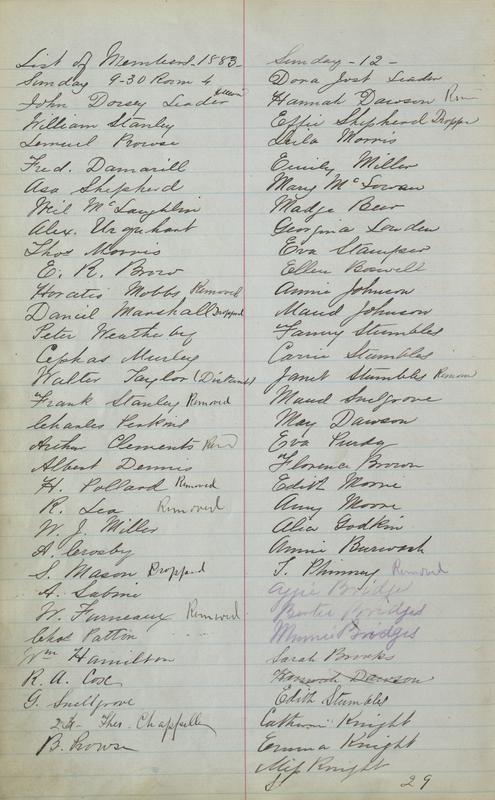 List of Members. 1883
Sunday 9-30 Room 4
John Dorsey Leader
William Stanley
Lemuel Prowse
Fred. Damarill
Asa Shepherd
Neil McLaughlin
Alex. Urquhart
Thos Morris
E. R. Brow
Horatio Mobbs Removed
Daniel Marshall Dropped
Peter Weatherby
Cephas Murley
Walter Taylor (Distant)
Frank Stanley Removed
Charles Perkins
Arthur Clements Rem'd
Albert Dennis
H. Pollard Removed
R. Lea Removed
W. J. Miller
A. Crosby
S. Mason Dropped
A. Sabine
W. Furneaux Removed
Chas Patton
Wm Hamilton
R. A. Cox
G. Snellgrove
Thos. Chappelle
B. Prowse
Sunday - 12 -
Dora Jost Leader
Hannah Dawson Rem
Effie Shepherd Dropped
Leila Morris
Emily Miller
Mary McGowan
Madge Beer
Georgina Lowden
Eva Stamper
Ellen Boswell
Annie Johnson
Maud Johnson
Fanny Stumbles
Carrie Stumbles
Janet Stumbles Removed
Maud Snelgrove
May Dawson
Eva Purdy
Florence Brown
Edith Moore
Amy Moore
Alice Godkin
Annie Burwash
T. Phinney Removed
Aggie Bridges
Bertie Bridges
Minnie Bridges
Sarah Brooks
Dawson
Edith Stumbles
Catherine Knight
Emma Knight
Miss Knight
29